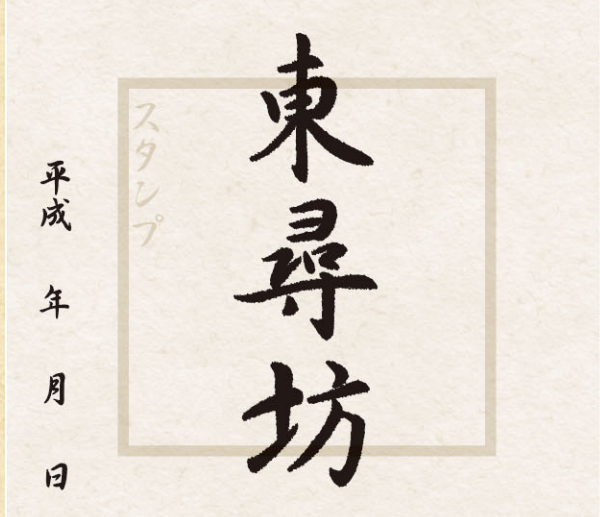 東尋坊
スタンプ
平成　年　月　日